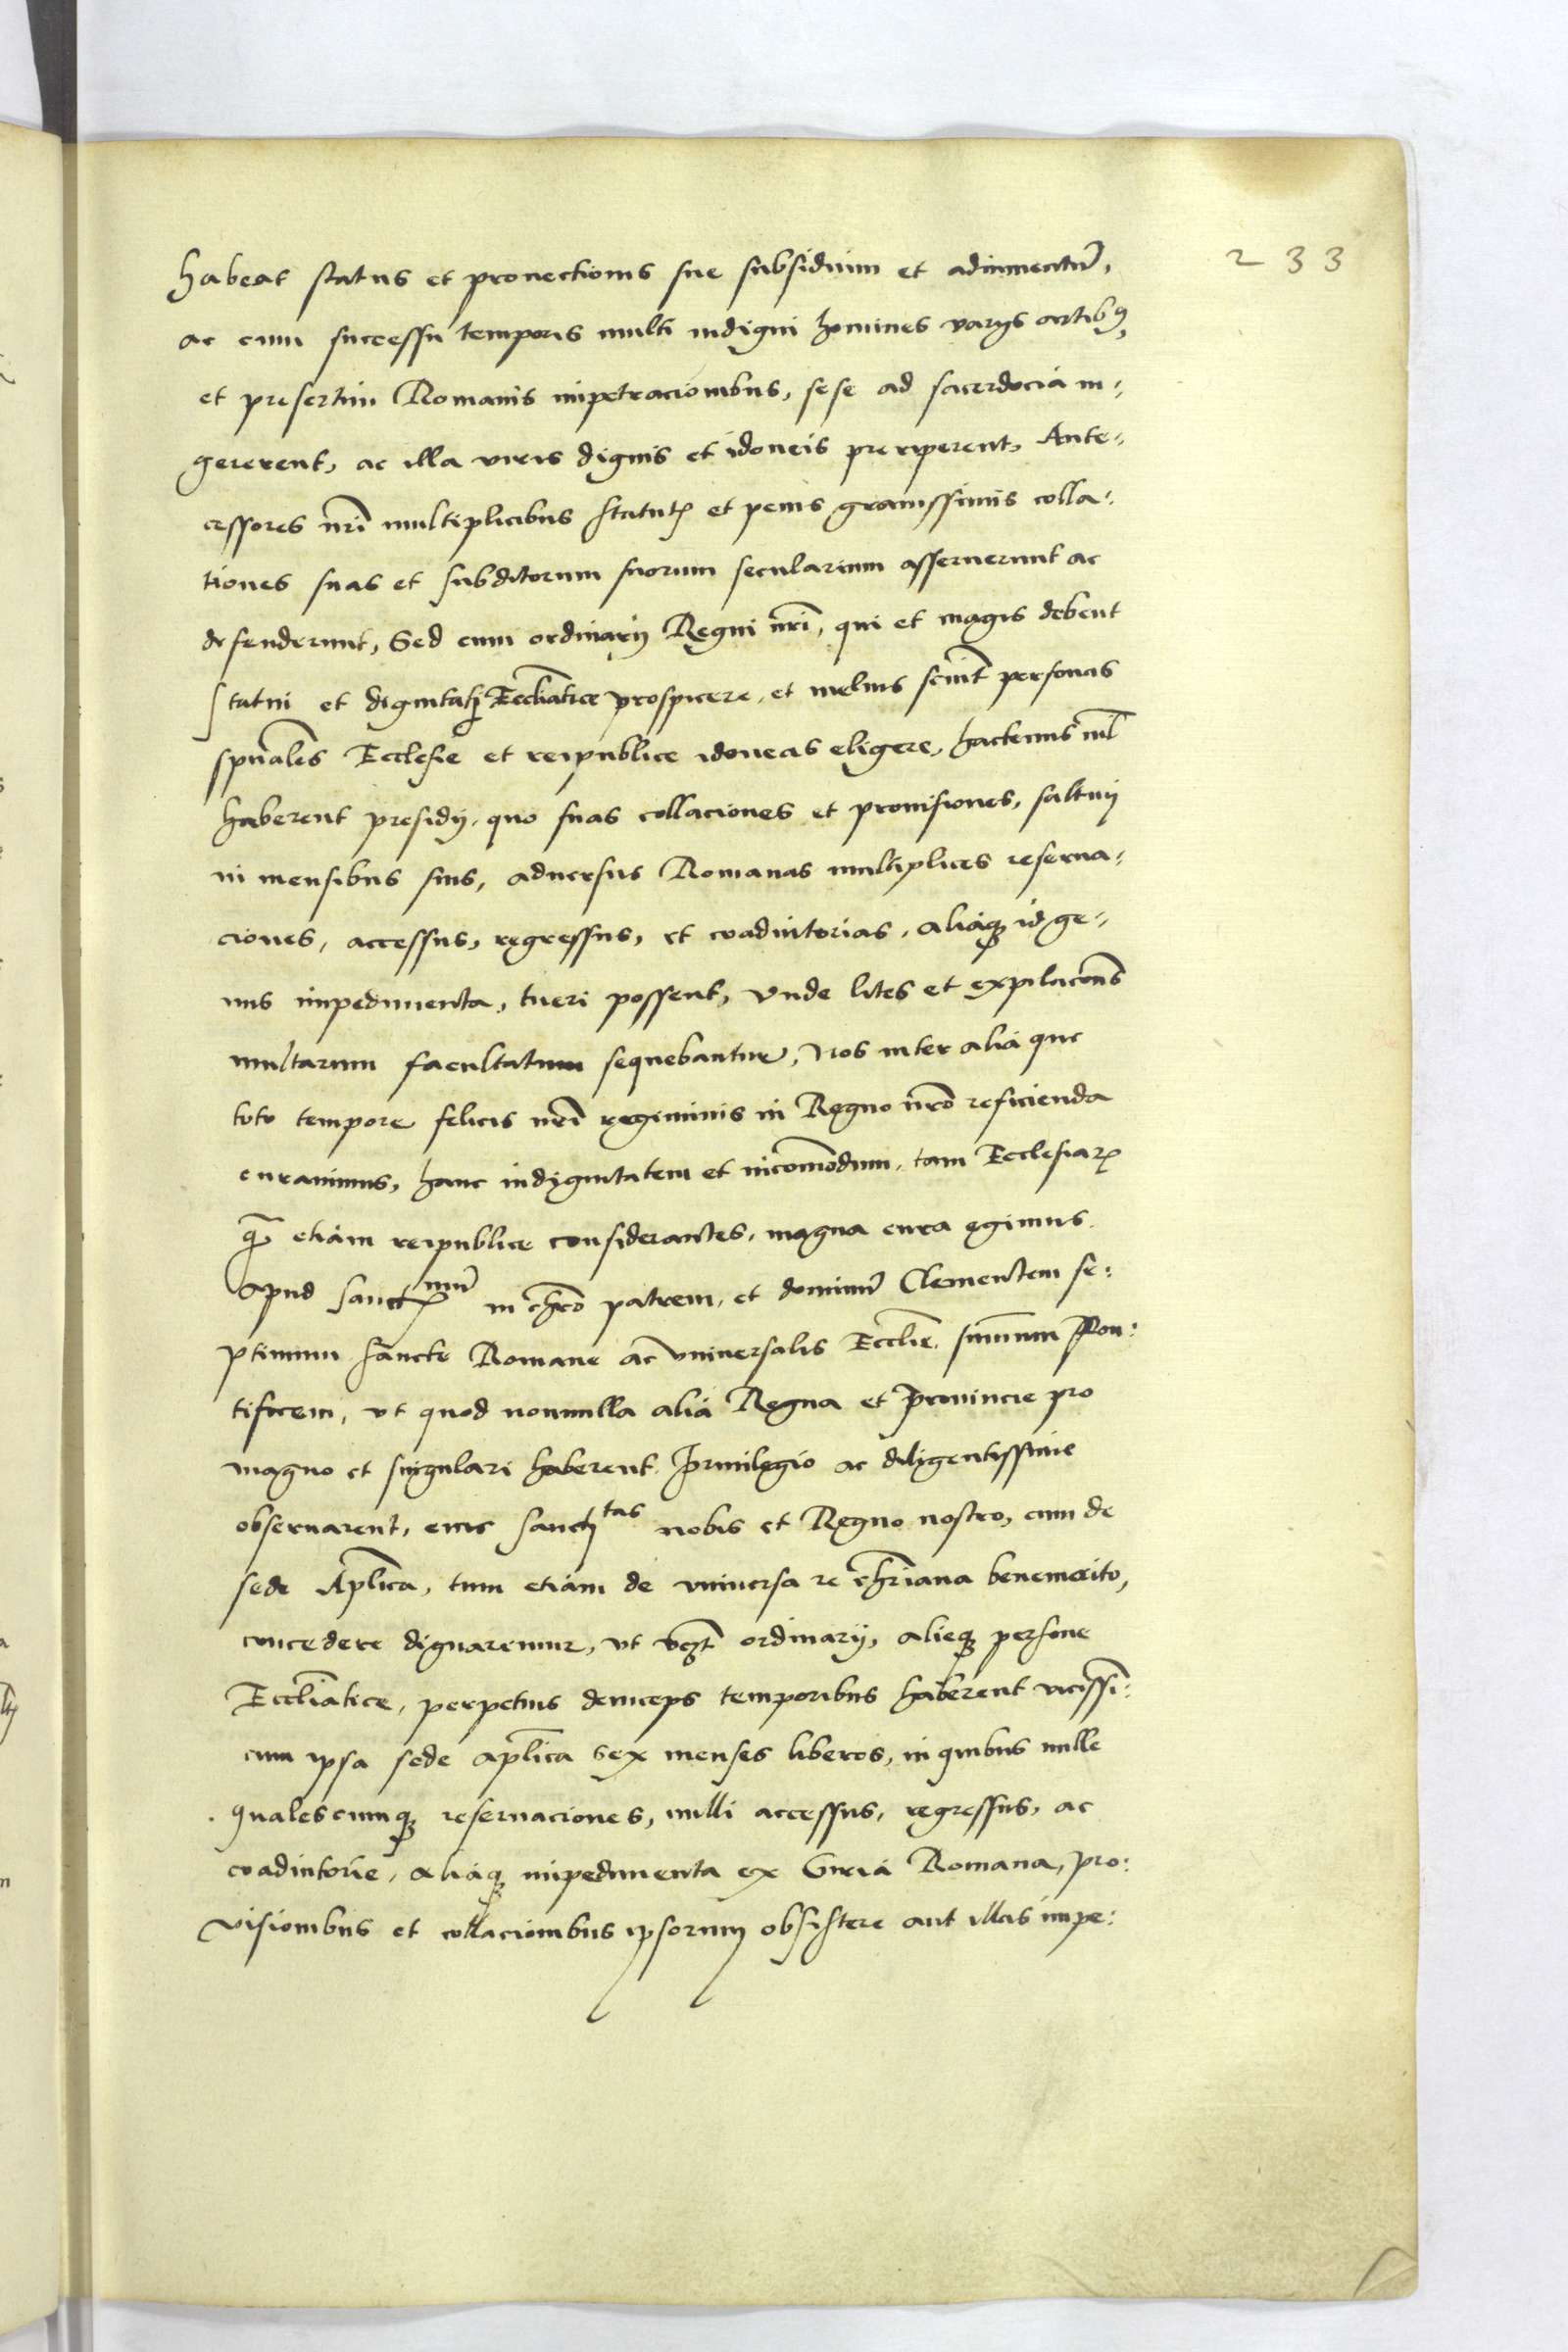 233
habeat status et provectionis sue subsidium et adiumentũ,
ac cum successu temporis multi indigni homines varijs artibꝯ,
et presertim Romanis impetracionibus, sese ad sacerdocia in-
gererent, ac illa viris dignis et idoneis preriperent, Ante-
cessores nr̃i multiplicibus statutꝭ et penis gravissimis colla-
tiones suas et subditorum suorum secularium asseruerunt ac
defenderunt, Sed cum ordinarij Regni nr̃i, qui et magis debent
statui et dignitati Eccliãtice prospicere, et melius sciũt personas
spũales Ecclesie et reipublice idoneas eligere, hactenus nil̃
haberent presidij, quo suas collaciones et provisiones, saltim
in mensibus suis, adversus Romanas multiplices reserva-
ciones, accessus, regressus, et coadiutorias, aliaqꝫ id ge-
nus impedimenta, tueri possent, unde lites et expilacõnes
multarum facultatum sequebantur, Nos inter alia que
toto tempore felicis nr̃i regiminis in Regno nr̃o reficienda
curavimus, hanc indignitatem et incomõdum, tam Ecclesiarꝝ
q̃ etiam reipublice considerantes, magna cura egimus
apud Sanctꝭmũ in chrõ patrem, et dominũ Clementem se:
ptimum sancte Romane ac universalis Eccliẽ, sum̃um Pon:
tificem, ut quod nonnulla alia Regna et Provincie pro
magno et singulari haberent Privilegio ac diligentissime
observarent, eius Sanctitas nobis et Regno nostro, cum de
sede Aplĩca, tum etiam de universa re chrĩana benemerito,
concedere dignaremur, ut vꝫt ordinarij, alieqꝫ persone
Eccliãtice, perpetuis deinceps temporibus haberent vicissĩ:
cum ipsa sede aplĩca sex menses liberos, in quibus nulle
qualescumqꝫ reservaciones, nulli accessus, regressus, ac
coadiutorie, aliaqꝫ impedimenta ex Curia Romana, pro:
visionibus et collacionibus ipsorum obsistere aut illas impe: